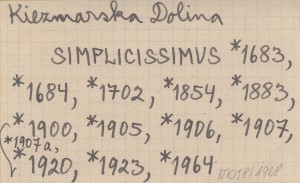 Kiezmarska Dolina
SIMPLICISSIMUS *1683,
*1684, *1702, *1854, *1883,
*1900, *1905, *1906, *1907,
*1907a,
*1920, *1923, *1964